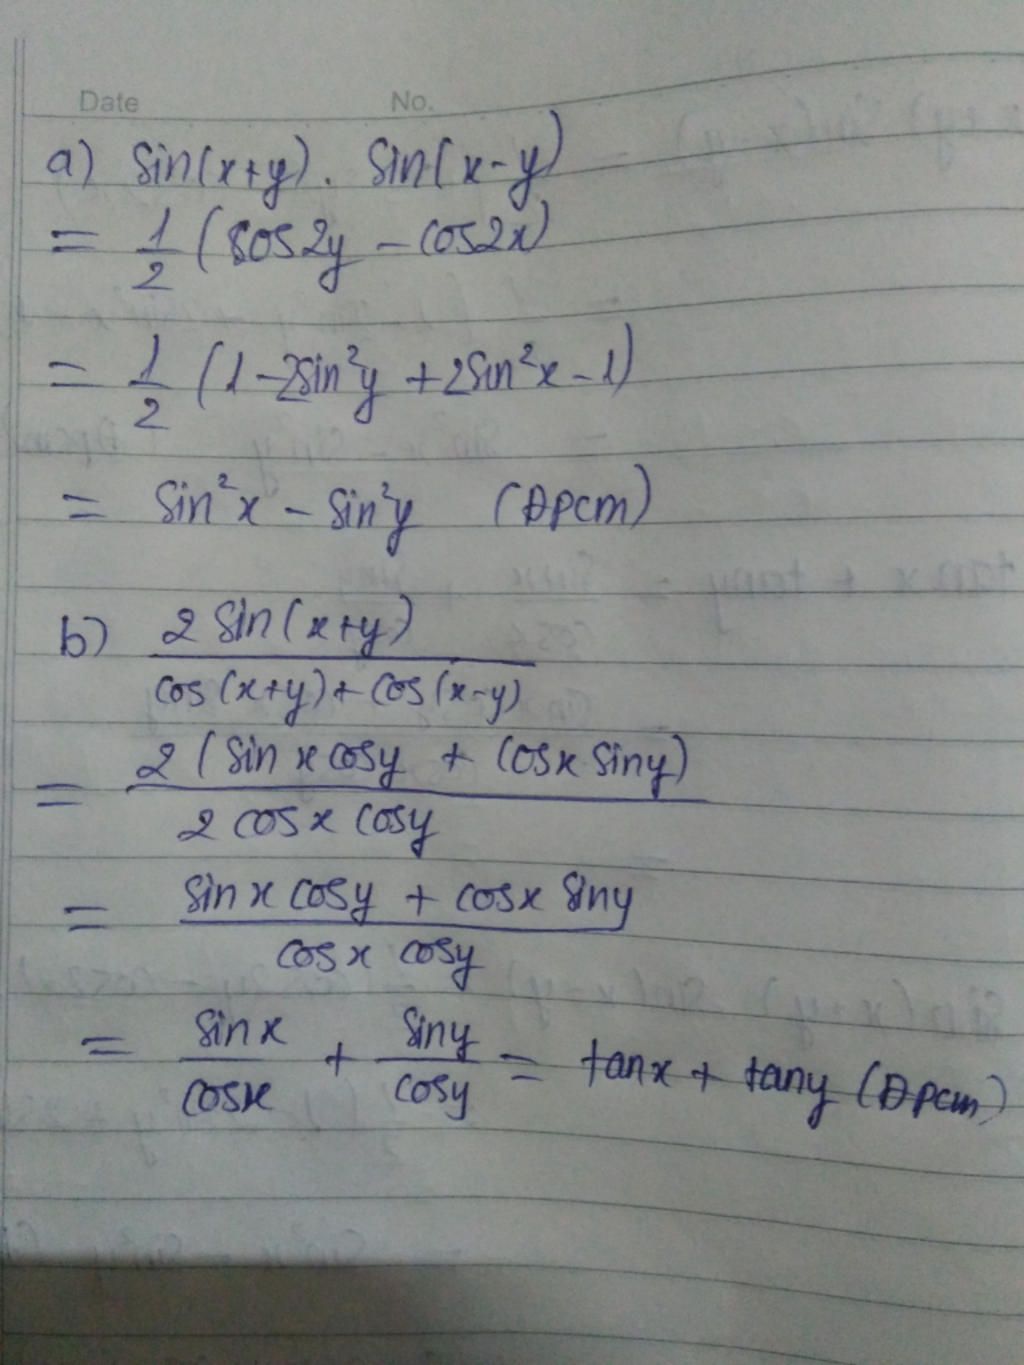 Date No.
a) sin(x+y). sin(x-y)
= 1/2 (cos2y - cos2x)
= 1/2 (1-2sin²y + 2sin²x - 1)
= sin²x - sin²y (Đpcm)
b) 2 sin(x+y) / cos(x+y) + cos(x-y)
= 2 (sin x cosy + cosx siny) / 2 cosx cosy
= sinx cosy + cosx siny / cosx cosy
= sinx / cosx + siny / cosy = tanx + tany (Đpcm)